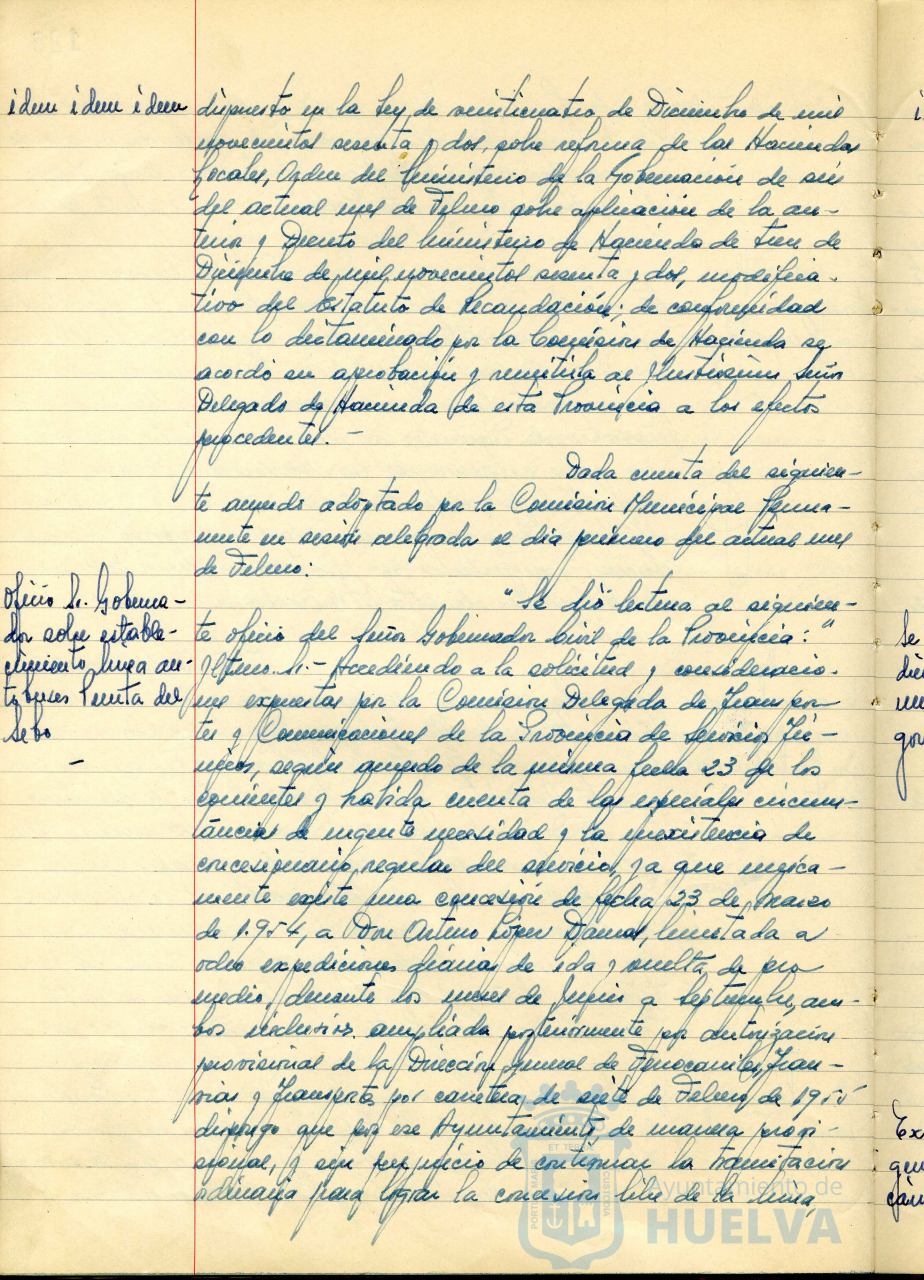 idem idem idem
dispuesto en la Ley de veinticuatro de Diciembre de mil
novecientos sesenta y dos, sobre reforma de las Haciendas
Locales, Orden del Ministerio de la Gobernación de seis
del actual mes de Febrero sobre aplicación de la an-
terior y Decreto del Ministerio de Hacienda de trece de
Diciembre de mil novecientos sesenta y dos, modifica-
tivo del Estatuto de Recaudación; de conformidad
con lo dictaminado por la Comisión de Hacienda se
acordó su aprobación y remitirla al Ilustrísimo Señor
Delegado de Hacienda de esta Provincia a los efectos
procedentes. -
Dada cuenta del siguien-
te acuerdo adoptado por la Comisión Municipal Perma-
nente en sesión celebrada el día primero del actual mes
de Febrero:
Oficio Sr. Goberna-
dor sobre estable-
cimiento linea au-
tobuses Punta del
Sebo
-
"Se dió lectura al siguien-
te oficio del Señor Gobernador Civil de la Provincia: "
Iltmo. Sr.- Accediendo a la solicitud y consideracio-
nes expuestas por la Comisión Delegada de Transpor
tes y Comunicaciones de la Provincia de Servicios Téc-
nicos, según acuerdo de la misma fecha 23 de los
corrientes y habida cuenta de las especiales circuns-
tancias de urgente necesidad y la inexistencia de
concesionario regular del servicio, ya que única-
mente existe una concesión de fecha 23 de Marzo
de 1.954, a Don Arturo López Damas, limitada a
ocho expediciones diarias de ida y vuelta, de pro
medio, durante los meses de Junio a Septiembre, am-
bos inclusives ampliada posteriormente por autorización
provisional de la Dirección General de Ferrocarriles, Tran-
vias y Transportes por carretera, de siete de Febrero de 1955
dispongo que por ese Ayuntamiento, de manera provi-
sional, y sin perjuicio de continuar la tramitación
ordinaria para lograr la concesión libre de la línea,
Se
go
Ex
Ayuntamiento de
HUELVA